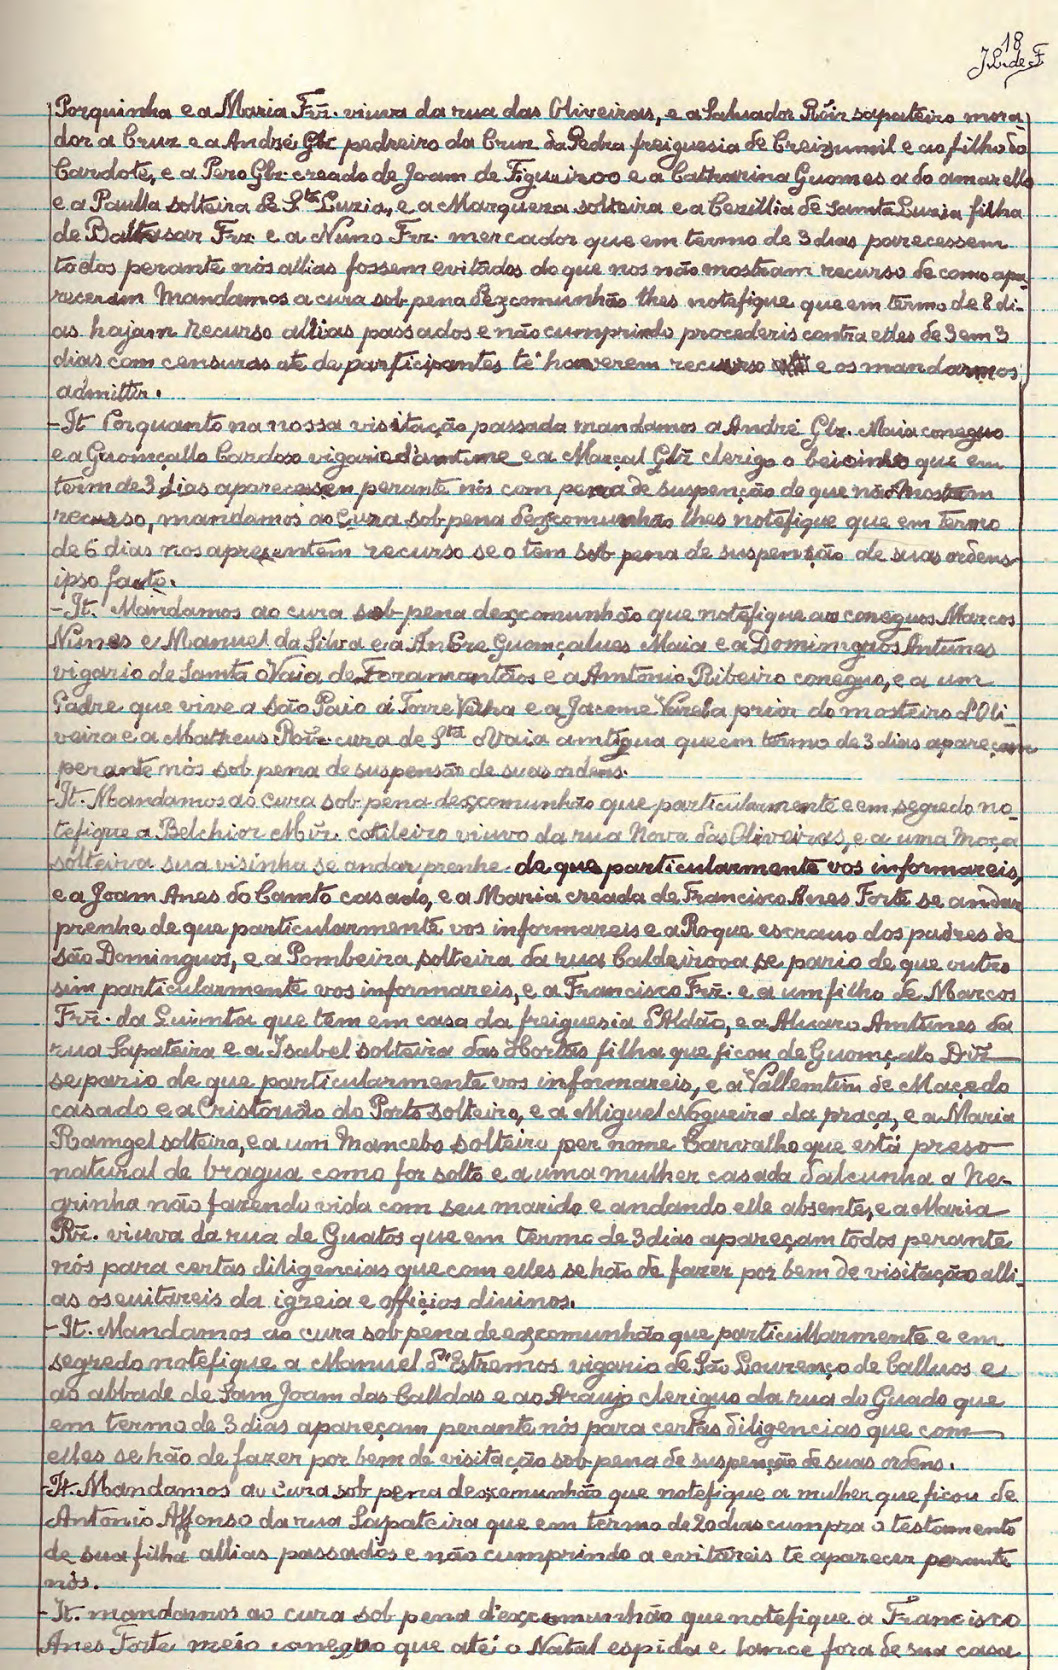 18
Porquinha e a Maria Frz. viuva da rua das Oliveiras, e a Saluador Roiz sapateiro mora-
dor a Cruz e a André Glz pedreiro da Cruz da Pedra freiguesia de Creixumil e ao filho do
Cardote, e a Pero Glz. creado de Joam de Figueiroo e a Catharina Guomes a do amarello
e a Paulla solteira de Sta Luzia, e a Marqueza solteira e a Cezillia de Santa Luzia filha
de Baltesar Frz e a Nuno Frz. mercador que em termo de 3 dias parecessem
todos perante nós allias fossem evitados do que nos não mostram recurso de como apa-
receram Mandamos a cura sob pena dexcomunhão lhes notefique que em termo de 8 di-
as hajam recurso allias passados e não cumprindo procedereis contra elles de 3 em 3
dias com censuras até de participantes té haverem recurso e os mandarmos
admittir.
- It Porquanto na nossa visitação passada mandamos a André Glz. Maia coneguo
e a Guomçallo Cardoso vigario d'amtime e a Marçal Glz clerigo o beicinho que em
term de 3 dias aparecessen perante nós com pena de suspenção de que não mostram
recurso, mandamos ao Cura sob pena dexcomunhão lhes notefique que em termo
de 6 dias nos apresentem recurso se o tem sob pena de suspensão de suas ordens
ipso facto.
- It. Mandamos ao cura sob pena dexcomunhão que notefigue aos coneguos Marcos
Nunes e Manuel da Silva e a Andre Guomçalues Maia e a Dominguos Antunes
vigario de Samta Ovaia de Foramontãos e a Amtonio Ribeiro coneguo, e a um
Padre que vive a São Paio á Torre Velha e a Jacome Varela prior do mosteiro d'Oli-
veira e a Matheus Roiz cura de Sta Ovaia amtigua que em termo de 3 dias apareçam
perante nós sob pena de suspensão de suas ordens.
- It. Mandamos ao cura sob pena dexcomunhão que particularmente e em segredo no-
tefique a Belchior Miz. cotileiro viuvo da rua Nova das Oliveiras, e a uma moça
solteira sua visinha se andar prenhe de que particularmente vos informareis,
e a Joam Anes do Camto casado, e a Maria creada de Francisco Anes Forte se andar
prenhe de que particularmente vos informareis e a Roque escrauo dos padres de
são Dominguos, e a Pombeira solteira da rua Caldeiroa se pario de que outro
sim particularmente vos informareis, e a Francisco Frz. e a um filho de Marcos
Frz. da Quimta que tem em casa da freiguesia d'Aldão, e a Aluaro Amtunes da
rua Sapateira e a Isabel solteira das Hortas filha que ficou de Guomçallo Diz
se pario de que particularmente vos informareis, e a Vallemtim de Maçedo
casado e a Cristouão do Porto solteiro, e a Miguel Nogueira da praça, e a Maria
Ramgel solteira, e a um mancebo solteiro per nome Carvalho que está preso
natural de bragua como for solto e a uma mulher casada d'alcunha a Ne-
grinha não fazendo vida com seu marido e andando elle absente, e a Maria
Rz. viuva da rua de Guatos que em termo de 3 dias apareçam todos perante
nós para certas diligencias que com elles se hão de fazer por bem de visitação alli-
as os euitareis da igreia e officios diuinos.
- It. Mandamos ao cura sob pena de excomunhão que particullarmente e em
segredo notefigue a Manuel d'Estremos vigario de São Lourenço de Calluos e
ao abbade de Sam Joam das Calldas e ao Araujo cleriguo da rua do Guado que
em termo de 3 dias apareçam perante nós para certas diligencias que com
elles se hão de fazer por bem de visitação sob pena de suspenção de suas ordens.
- It. Mandamos ao cura sob pena dexcomunhão que notefique a mulher que ficou de
Antonio Affonso da rua Sapateira que em termo de 20 dias cumpra o testamento
de sua filha allias passados e não cumprindo a evitareis te aparecer perante
nós.
- It. mandamos ao cura sob pena d'excomunhão que notefique a Francisco
Anes Forte meio coneguo que atéi o Natal espida e lance fora de sua casa